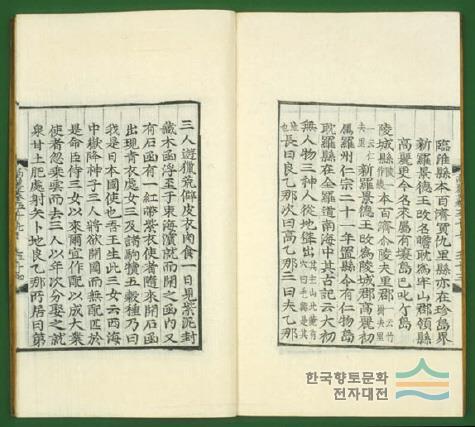 臨淮縣本百濟買仇里縣亦在珍島界
新羅景德王改名瞻耽爲牢山郡領縣
高麗更今名來屬有島巴叱ケ島
陵城縣本百濟尒陵夫里郡陵夫里一云竹樹夫里
一云仁夫里新羅景德王改爲陵城郡高麗初
屬羅州仁宗二十一年置縣令有仁物島
耽羅縣在全羅道南海中其古記云太初
無人物三神人從地聳出其主山北麓有穴曰毛興是其
地也長曰良乙那次曰高乙那三曰夫乙那
三人遊獵荒僻皮衣肉食一日見紫泥封
藏木函浮至于東海濱就而開之函內又
有石函有一紅帶紫衣使者隨來開石函
出現青衣處女三及諸駒犢五穀種乃曰
我是日本國使也吾王生此三女云西海
中嶽降神子三人將欲開國而無配匹於
是命臣侍三女以來爾宜作配以成大業
使者忽乘雲而去三人以年次分娶之就
泉甘土肥處射矢卜地良乙那所居曰第
한국향토문화
전자대전